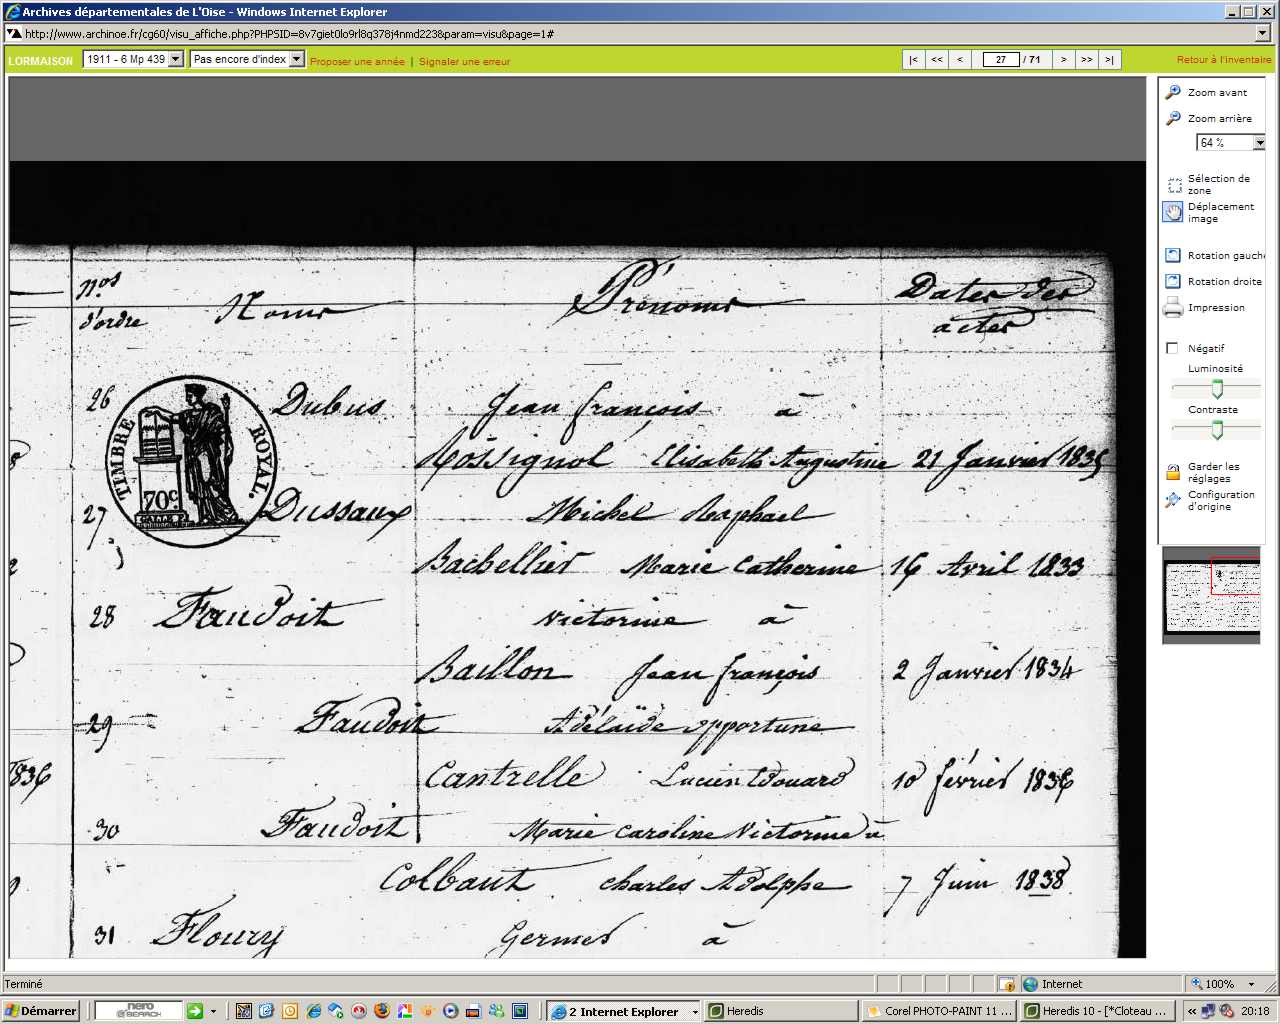 Archives départementales de L'Oise - Windows Internet Explorer
http://www.archinoe.fr/cg60/visu_affiche.php?PHPSID=8v7giet0lo9rl8q378j4nmd223&param=visu&page=1#
LORMAISON 1911 - 6 Mp 439 Pas encore d'index Proposer une année | Signaler une erreur |< << < 27 / 71 > >> >| Retour à l'inventaire
Zoom avant
Zoom arrière
64 %
Sélection de
zone
Déplacement
image
Rotation gauche
Rotation droite
Impression
Négatif
Luminosité
Contraste
Garder les
réglages
Configuration
d'origine
Nos d'ordre Noms Prénoms Dates des actes
TIMBRE ROYAL.
70c.
26 Dubus Jean françois à
Rossignol Elisabeth Augustine 21 Janvier 1835
27 Dussaux Michel Raphael
Bachellier Marie Catherine 16 Avril 1833
28 Faudoit Victorine à
Baillon Jean françois 2 Janvier 1834
29 Faudoit Adélaïde opportune
1836 Cantrelle Lucien Edouard 10 février 1836
30 Faudoit Marie Caroline Victorine à
Colbaut Charles Adolphe 7 Juin 1838
31 Floury Germer à
Terminé Internet 100%
Démarrer nero SEARCH 2 Internet Explorer Heredis Corel PHOTO-PAINT 11 ... Heredis 10 - [*Cloteau ... « 20:18